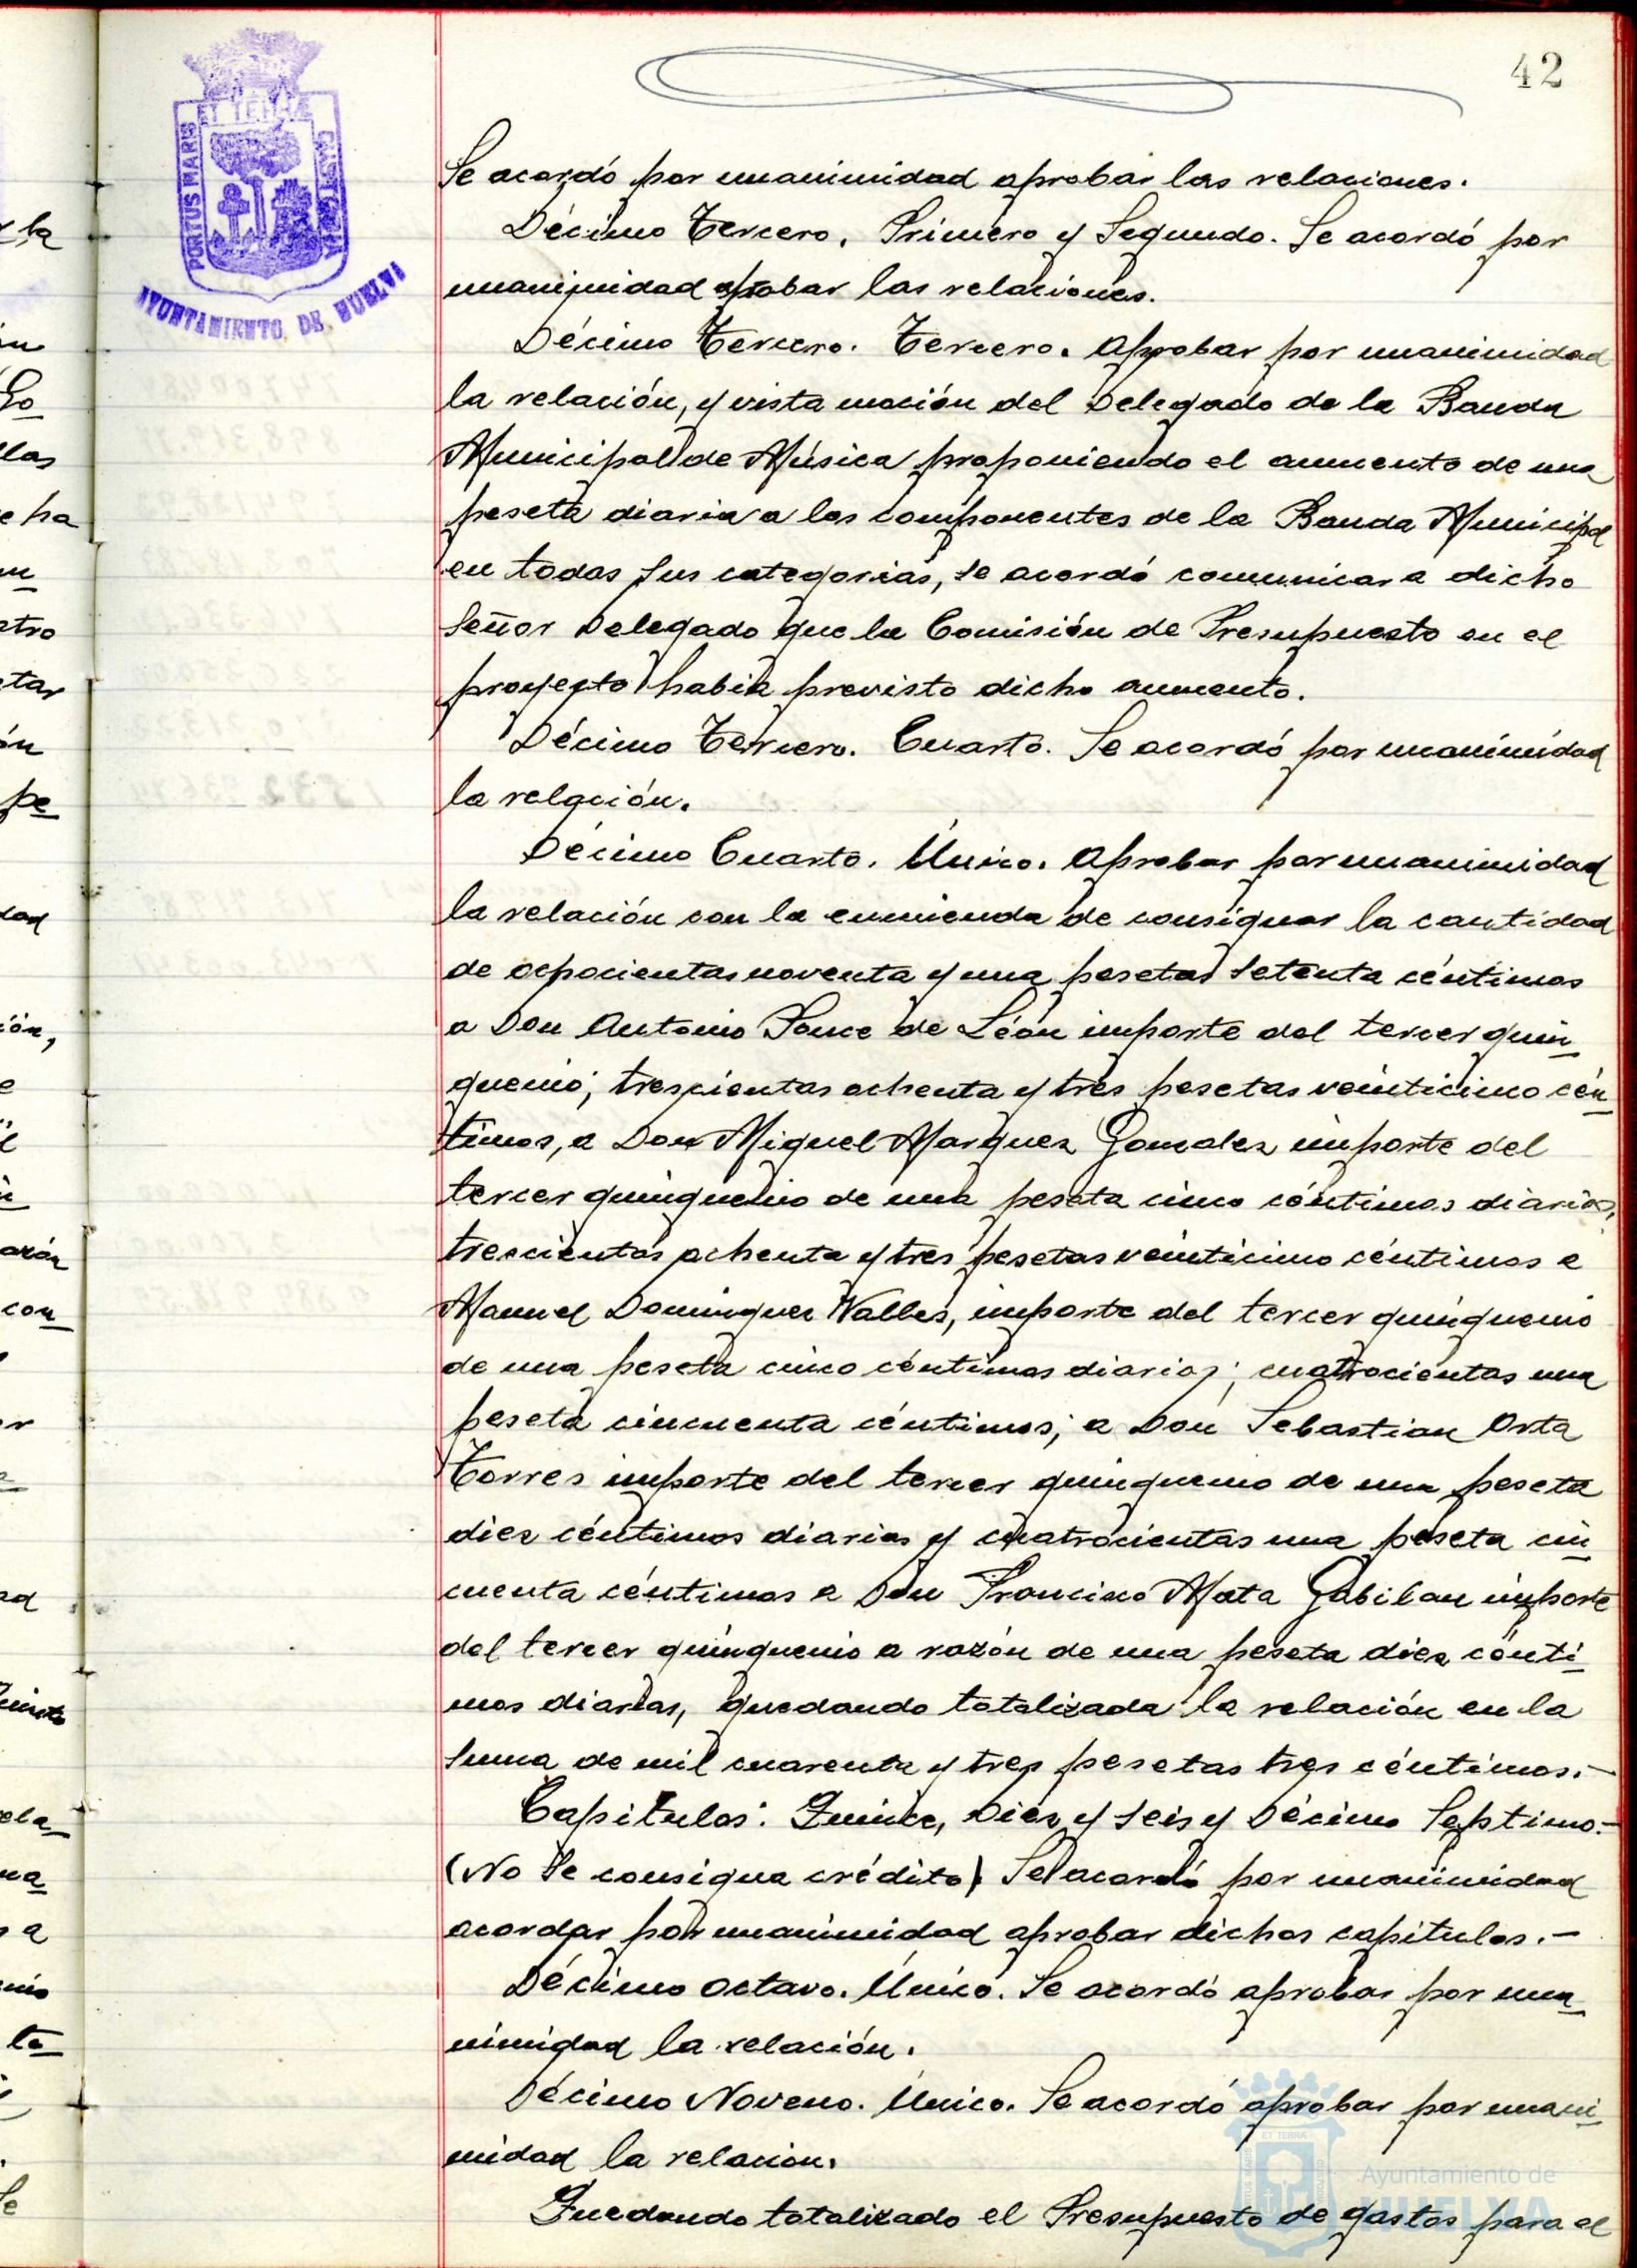 42
PORTUS MARIS ET TERRÆ CUSTODIA
AYUNTAMIENTO DE HUELVA
Se acordó por unanimidad aprobar las relaciones.
Décimo Tercero. Primero y Segundo. Se acordó por
unanimidad aprobar las relaciones.
Décimo Tercero. Tercero. Aprobar por unanimidad
la relación, y vista moción del Delegado de la Banda
Municipal de Música proponiendo el aumento de una
peseta diaria a los componentes de la Banda Municipal
en todas sus categorias, se acordó comunicar a dicho
Señor Delegado que la Comisión de Presupuesto en el
proyecto habia previsto dicho aumento.
Décimo Tercero. Cuarto. Se acordó por unanimidad
la relación.
Décimo Cuarto. Único. Aprobar por unanimidad
la relación con la enmienda de consignar la cantidad
de ochocientas noventa y una pesetas setenta céntimos
a Don Antonio Ponce de León importe del tercer quin
quenio; trescientas ochenta y tres pesetas veinticinco cén
timos, a Don Miguel Marquez Gonzalez importe del
tercer quinquenio de una peseta cinco céntimos diarios,
trescientas ochenta y tres pesetas veinticinco céntimos a
Manuel Dominguez Valles, importe del tercer quinquenio
de una peseta cinco céntimos diarios; cuatrocientas una
peseta cincuenta céntimos; a Don Sebastian Orta
Torres importe del tercer quinquenio de una peseta
diez céntimos diarios y cuatrocientas una peseta cin
cuenta céntimos a Don Francisco Mata Gabilan importe
del tercer quinquenio a razón de una peseta diez cénti
mos diarias, quedando totalizada la relación en la
suma de mil cuarenta y tres pesetas tres céntimos.-
Capitulos: Quince, Diez y seis y Décimo Septimo.-
(No se consigna crédito) Se acordó por unanimidad
acordar por unanimidad aprobar dichos capitulos.-
Décimo octavo. Único. Se acordó aprobar por una
nimidad la relación.
Décimo Noveno. Único. Se acordó aprobar por unani
midad la relacion.
Quedando totalizado el Presupuesto de gastos para el
Ayuntamiento de
HUELVA